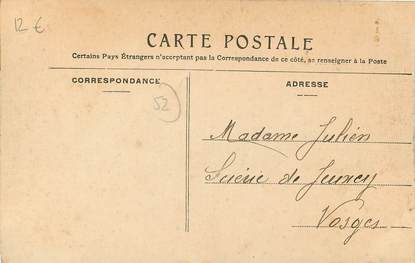 12 €
CARTE POSTALE
Certains Pays Étrangers n'acceptant pas la Correspondance de ce côté, se renseigner à la Poste
CORRESPONDANCE
ADRESSE
52
Madame Julien
de
Vosges